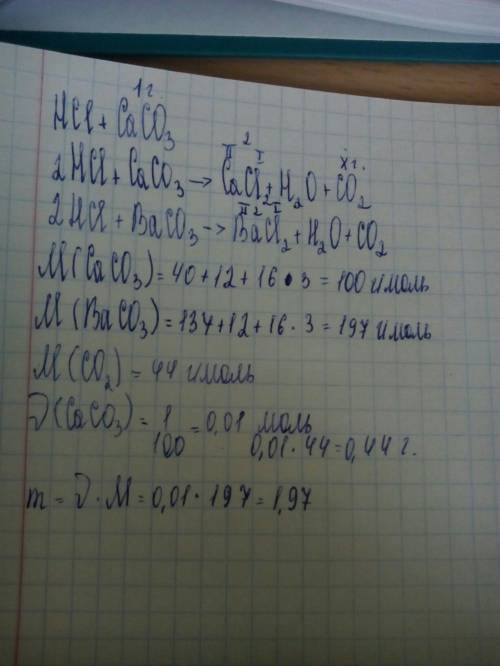 1 г
HCl + CaCO₃
II 2 I x г.
2HCl + CaCO₃ → CaCl₂ + H₂O + CO₂
II 2 I
2HCl + BaCO₃ → BaCl₂ + H₂O + CO₂
M(CaCO₃) = 40 + 12 + 16 · 3 = 100 г/моль
M(BaCO₃) = 137 + 12 + 16 · 3 = 197 г/моль
M(CO₂) = 44 г/моль
ν(CaCO₃) = 1/100 = 0,01 моль
0,01 · 44 = 0,44 г.
m = ν · M = 0,01 · 197 = 1,97